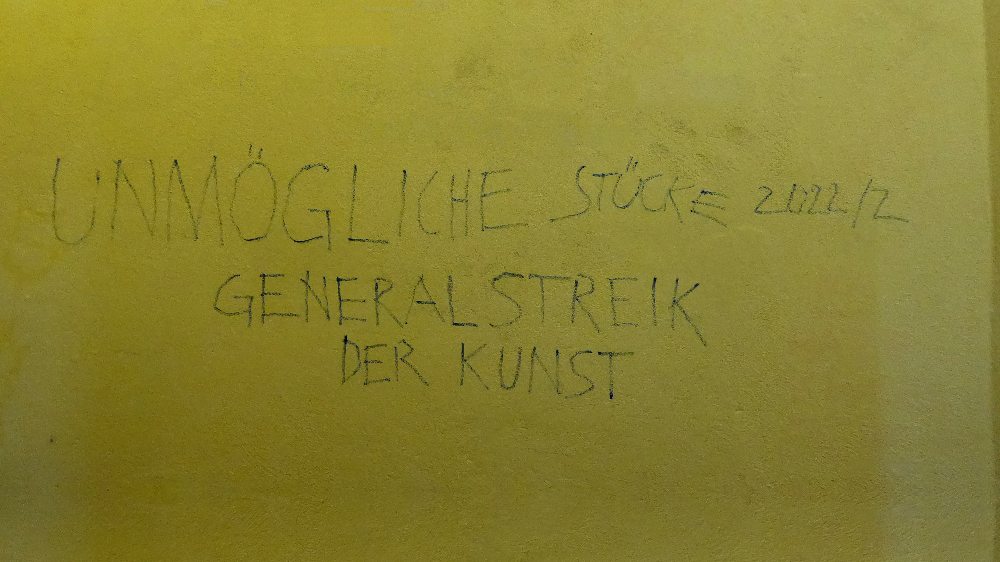 UNMÖGLICHE STÜCKE 2022/2
GENERALSTREIK
DER KUNST